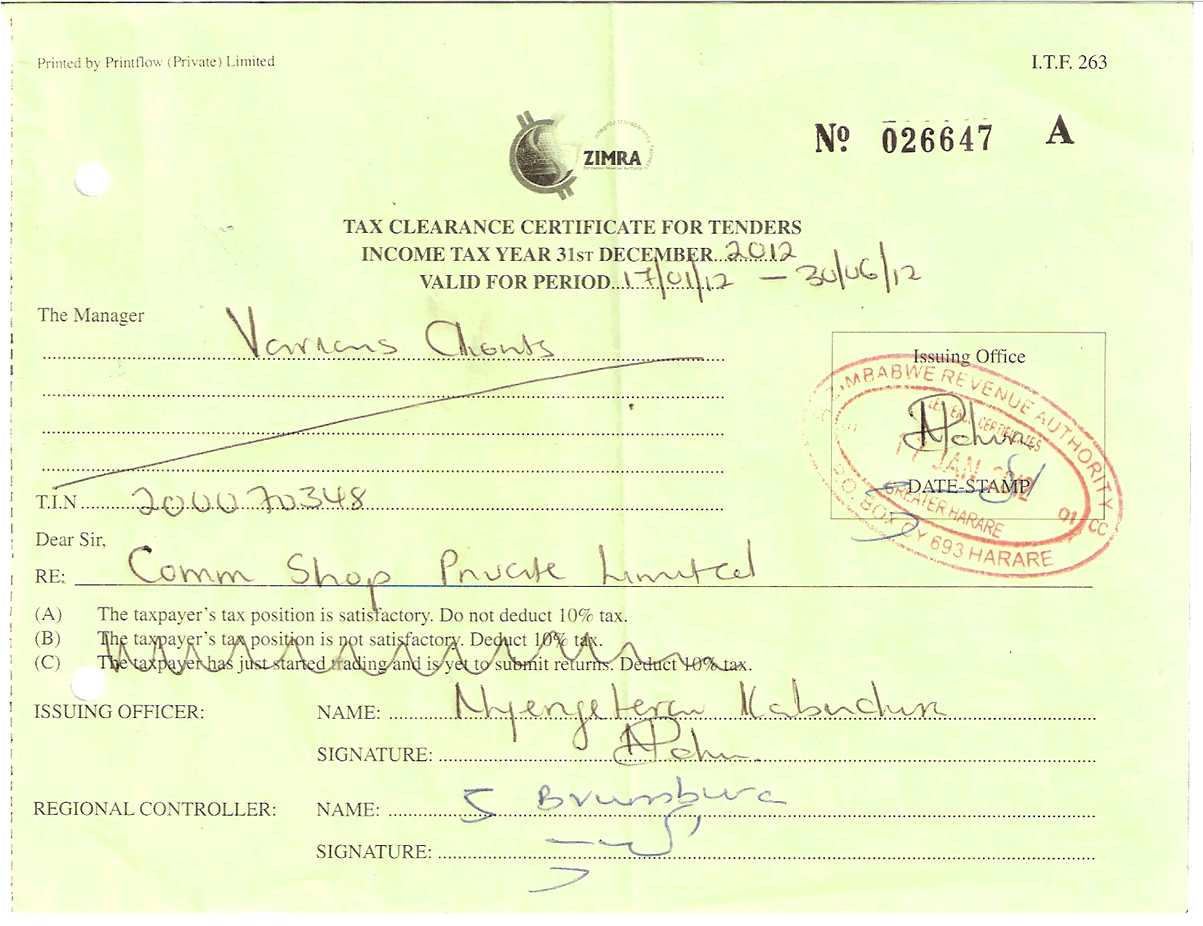 Printed by Printflow (Private) Limited
I.T.F. 263
Nº 026647 A
ZIMRA
TAX CLEARANCE CERTIFICATE FOR TENDERS
INCOME TAX YEAR 31ST DECEMBER 2012
VALID FOR PERIOD 17/01/12 — 30/06/12
The Manager
Issuing Office
ZIMBABWE REVENUE AUTHORITY
17 JAN 2012
DATE-STAMP
GREATER HARARE
P.O. BOX CY 693 HARARE
T.I.N 200070348
Dear Sir,
RE: Comm Shop Private Limited
(A) The taxpayer's tax position is satisfactory. Do not deduct 10% tax.
(B) The taxpayer's tax position is not satisfactory. Deduct 10% tax.
(C) The taxpayer has just started trading and is yet to submit returns. Deduct 10% tax.
ISSUING OFFICER: NAME:
SIGNATURE:
REGIONAL CONTROLLER: NAME:
SIGNATURE: